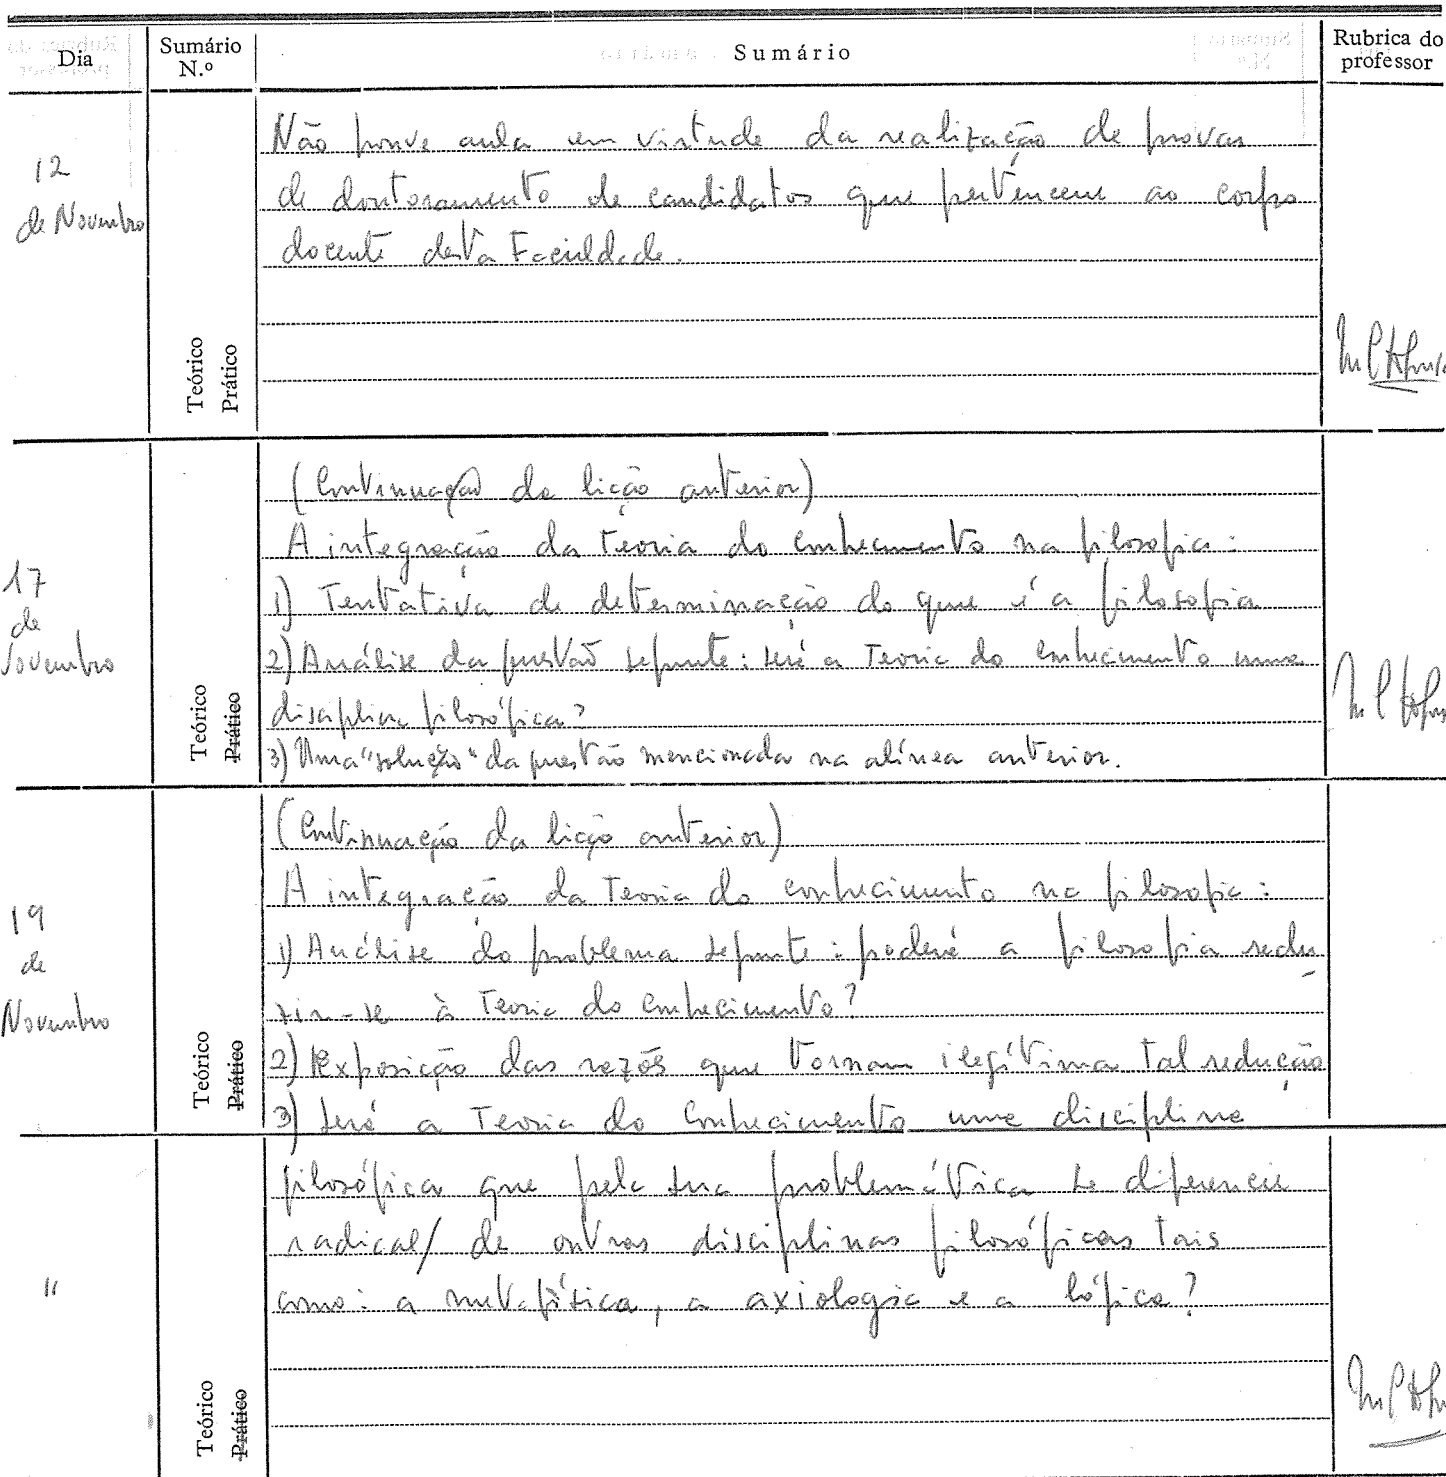 Dia Sumário N.º Sumário Rubrica do professor
12 de Novembro
Não houve aula em virtude da realização de provas
de doutoramento de candidatos que pertencem ao corpo
docente desta Faculdade.
Teórico
Prático
17 de Novembro
(Continuação da lição anterior)
A integração da Teoria do Conhecimento na filosofia:
1) Tentativa de determinação do que é a filosofia
2) Análise da questão seguinte: será a Teoria do Conhecimento uma
disciplina filosófica?
3) Uma "solução" da questão mencionada na alínea anterior.
Teórico
Prático
19 de Novembro
(Continuação da lição anterior)
A integração da Teoria do conhecimento na filosofia:
1) Análise do problema seguinte: poderá a filosofia redu
zir-se à Teoria do Conhecimento?
2) Exposição das razões que tornam ilegítima tal redução
3) Será a Teoria do Conhecimento uma disciplina
Teórico
Prático
"
filosófica que pela sua problemática se diferencie
radical/ de outras disciplinas filosóficas tais
como: a metafísica, a axiologia e a lógica?
Teórico
Prático